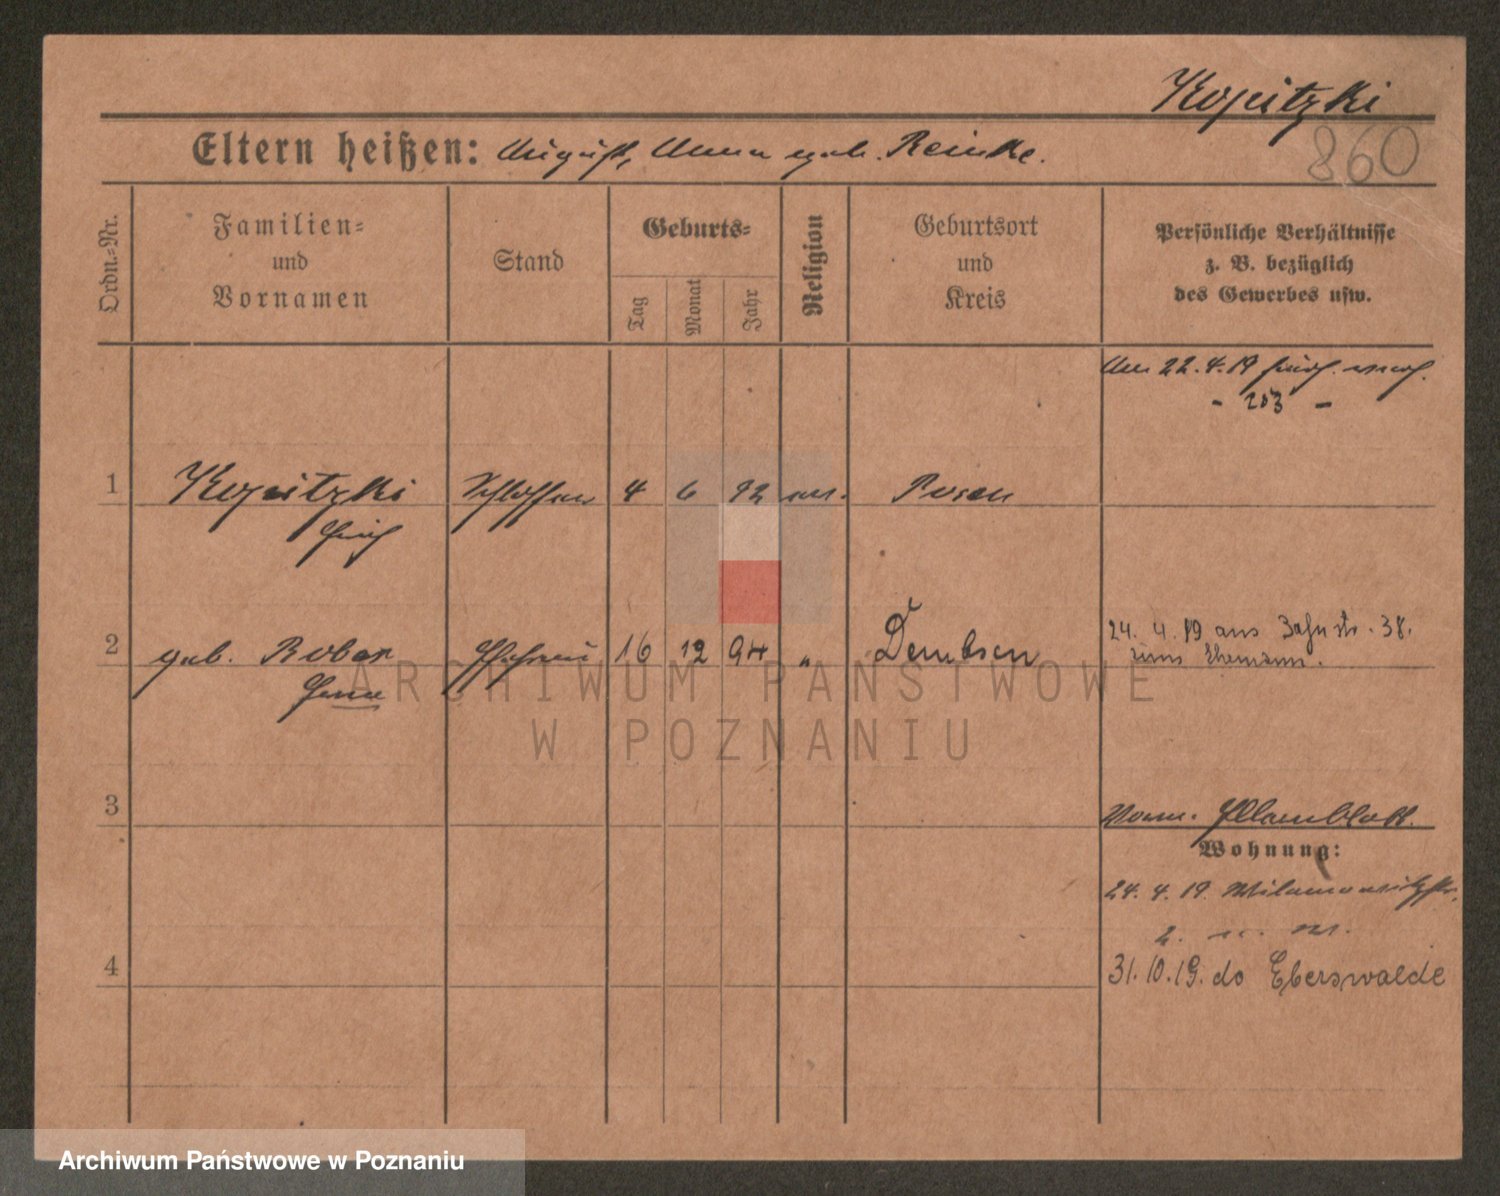 Kopitzki
860
Eltern heißen: August, Anna geb. Reinke.
Ordn.-Nr.
Familien-
und
Vornamen
Stand
Geburts-
Tag
Monat
Jahr
Religion
Geburtsort
und
Kreis
Persönliche Verhältnisse
z. B. bezüglich
des Gewerbes usw.
Am 22.4.19
- 203 -
1 Kopitzki Schlosser 4 6 92 ev. Posen
Erich
2 geb. Rober Ehefrau 16 12 94 " Dembsen
24. 4. 19 aus 38.
Ehemann.
3
Wohnung:
24. 4. 19 Wilamowitzstr.
4
31.10.19. do Eberswalde
ARCHIWUM PAŃSTWOWE
W POZNANIU
Archiwum Państwowe w Poznaniu